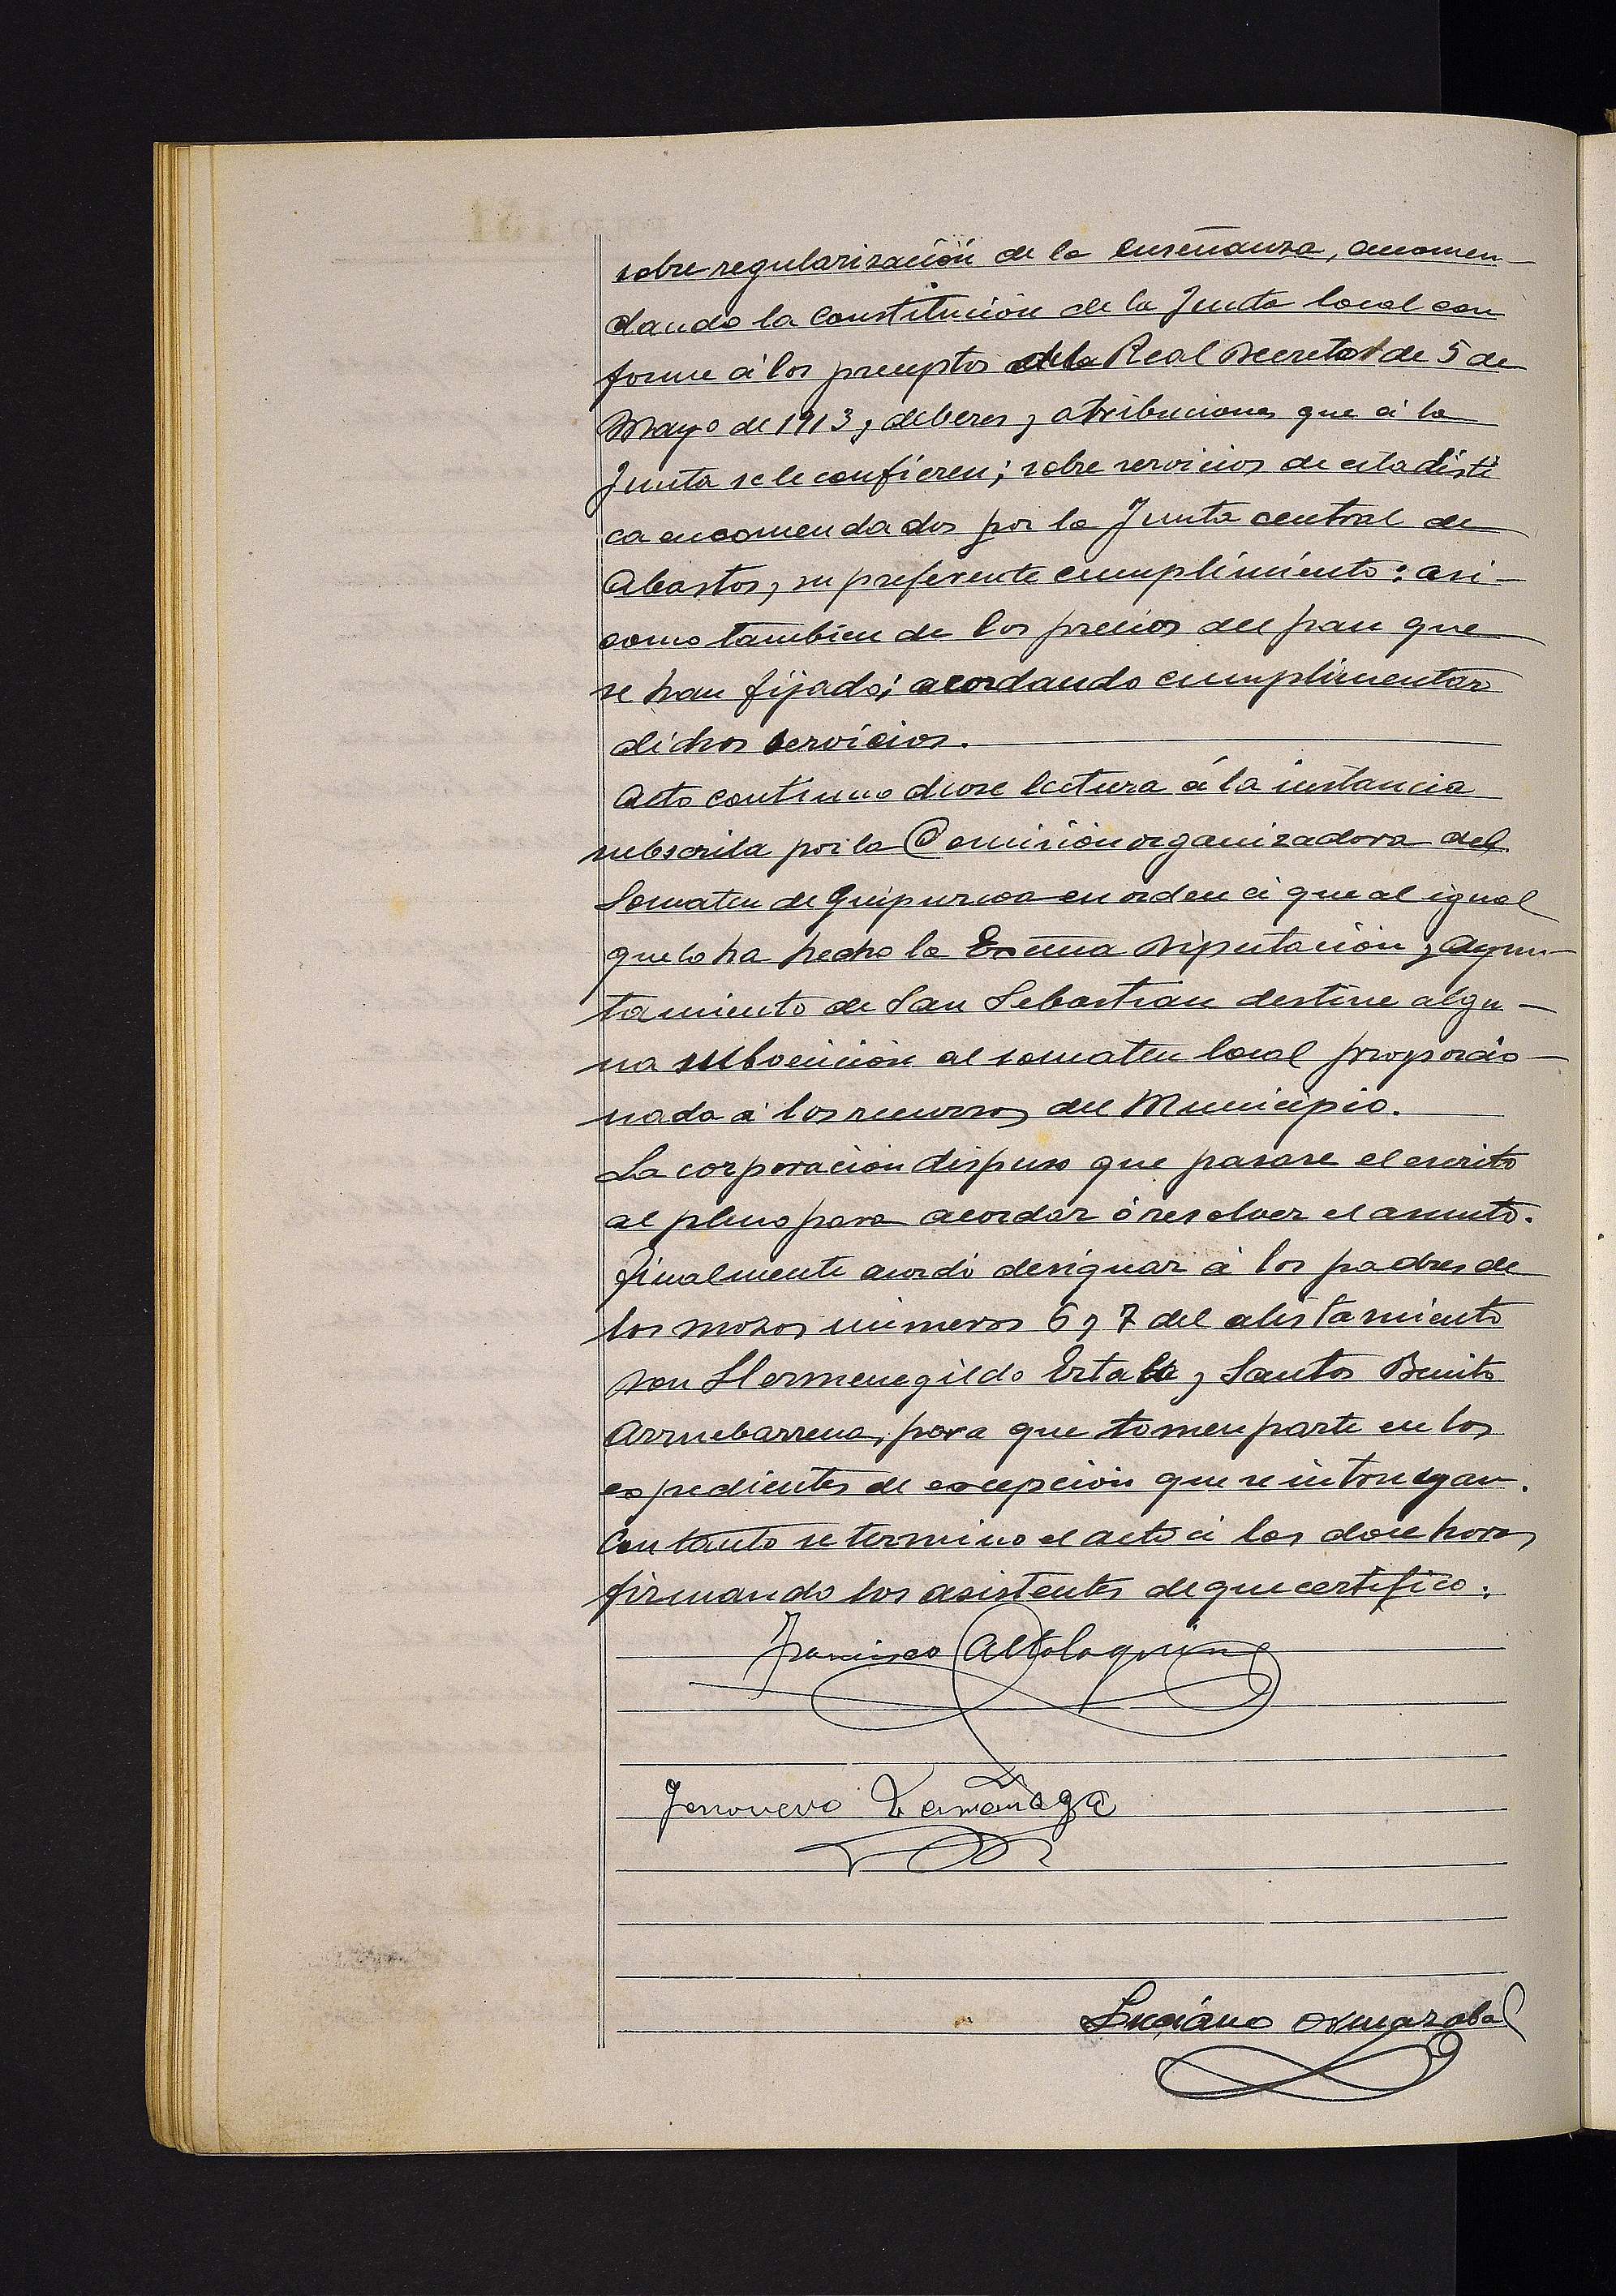 sobre regularización de la enseñanza, encomen-
dando la Constitución de la Junta local con
forme á los preceptos de la Real Decreto de 5 de
Mayo de 1913, deberes y atribuciones que á la
Junta se le confieren; sobre servicios de estadisti
ca encomendados por la Junta central de
Abastos, su preferente cumplimiento: asi-
como tambien de los precios del pan que
se han fijado; acordando cumplimentar
dichos servicios.
Acto continuo diose lectura á la instancia
subscrita por la Comisión organizadora del
Somaten de Guipuzcoa en orden á que al igual
que lo ha hecho la Excma Diputación y Ayun-
tamiento de San Sebastian destine algu-
na subvención al somaten local proporcio-
nada á los recursos del Municipio.
La corporación dispuso que pasase el escrito
al pleno para acordar ó resolver el asunto.
Finalmente acordó designar á los padres de
los mozos números 6 y 7 del alistamiento
son Hermenegildo y Santos Benito
Arruebarrena, para que tomen parte en los
expedientes de excepción que se intruyan.
Con tanto se termino el acto á las doce horas
firmando los asistentes de que certifico.
Francisco Altolaguirre
Jenoveva
Luciano Ormazabal